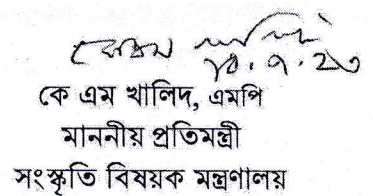 ১৫.৭.২৩
কে এম খালিদ, এমপি
মাননীয় প্রতিমন্ত্রী
সংস্কৃতি বিষয়ক মন্ত্রণালয়